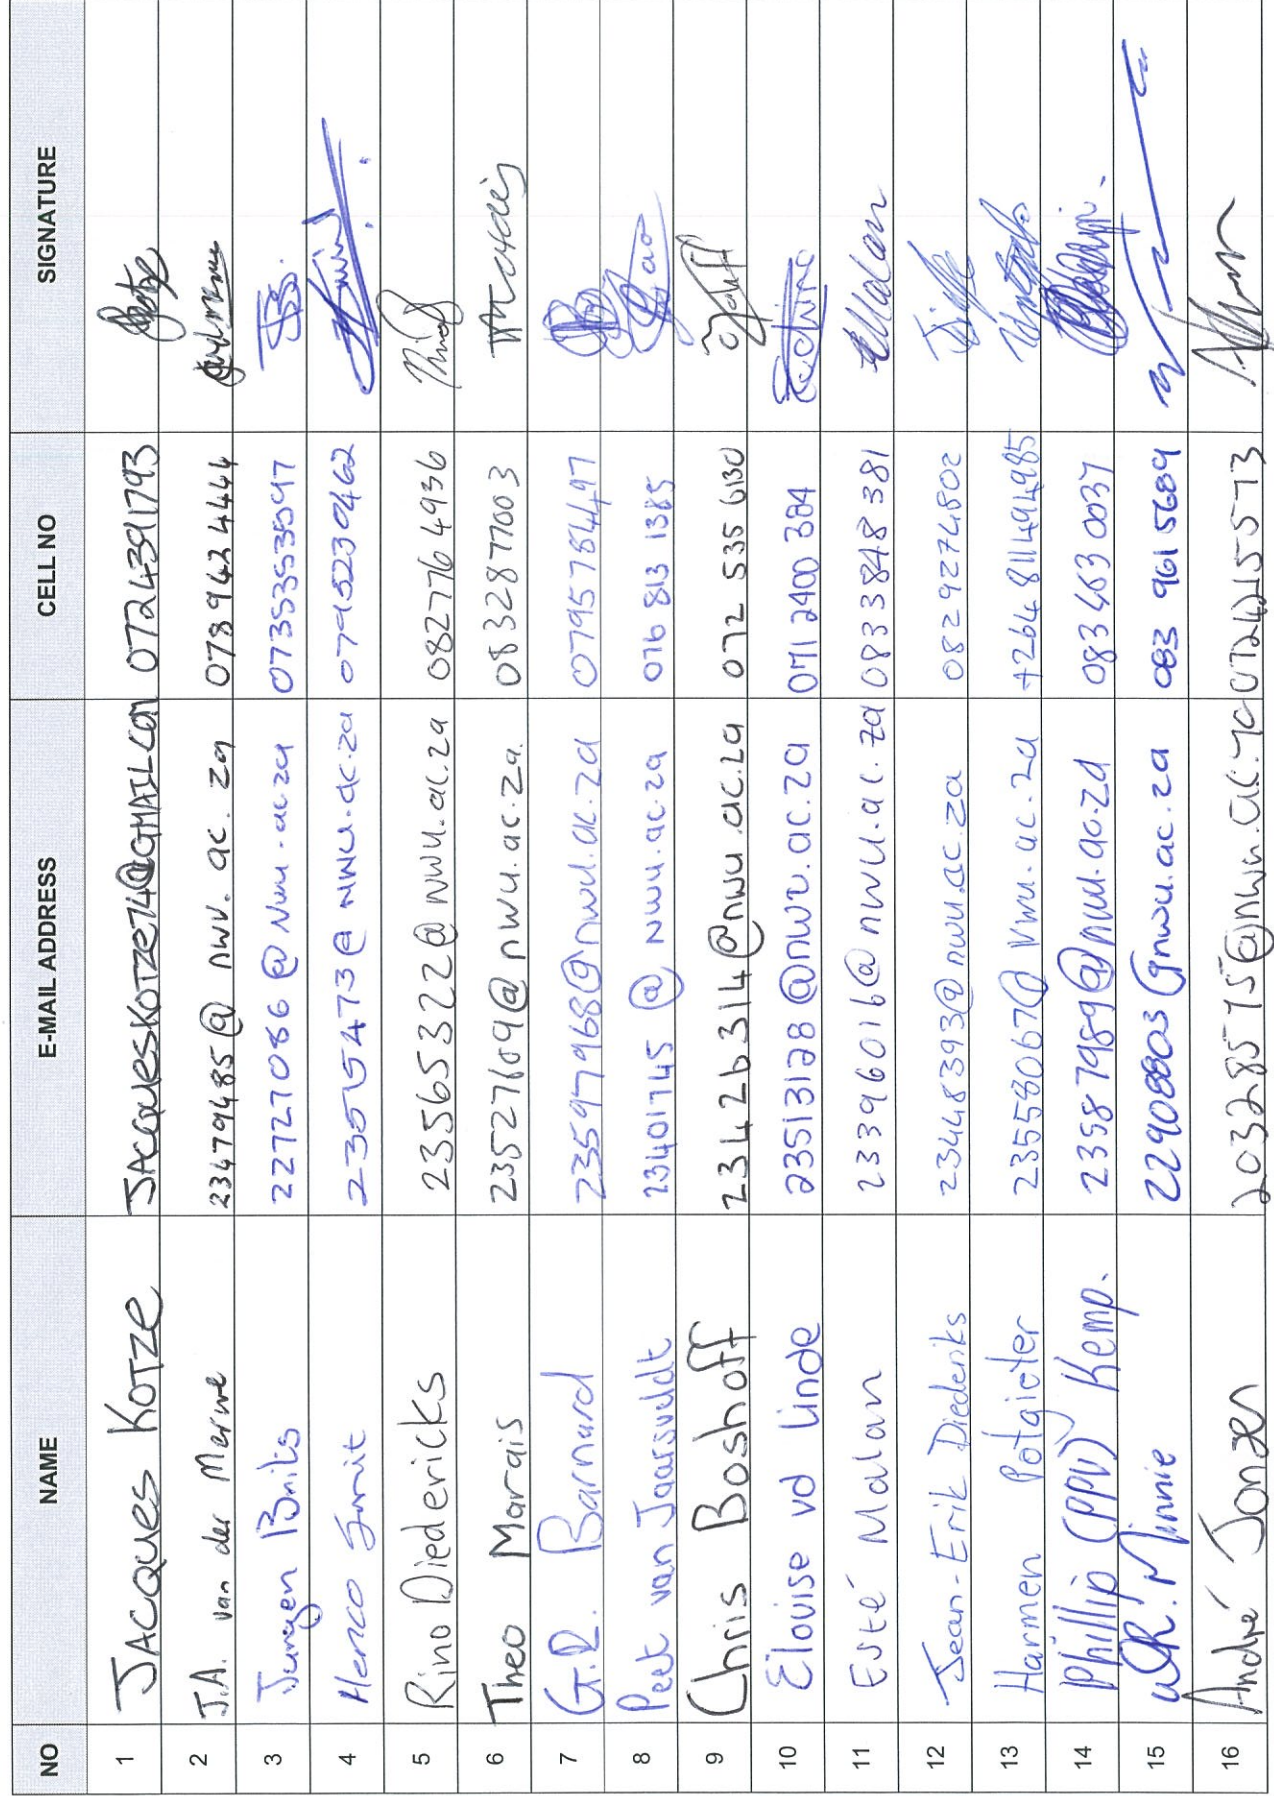 NO NAME E-MAIL ADDRESS CELL NO SIGNATURE
1 JACQUES KOTZE JACQUESKOTZE74@GMAIL.COM 0724391793
2 J.A. van der Merwe 23479485@nwu.ac.za 078 942 4444
3 Jurgen Brits 22727086@nwu.ac.za 0735353597
4 Henco Smit 23515473@NWU.ac.za 0795230462
5 Rino Diedericks 23565322@nwu.ac.za 0827764936
6 Theo Marais 23527609@nwu.ac.za. 0832877003
7 G.R. Barnard 23597968@nwu.ac.za 0795784497
8 Peet van Jaarsveldt 23401745@nwu.ac.za 076 813 1385
9 Chris Boshoff 23426314@nwu.ac.za 072 535 6130
10 Elouise vd Linde 23513128@nwu.ac.za 071 2400 384
11 Esté Malan 23396016@nwu.ac.za 0833848381 EMalan
12 Jean-Erik Diederiks 23448393@nwu.ac.za 0829274802
13 Harmen Potgieter 23558067@nwu.ac.za +264 811494985
14 Phillip (PPV) Kemp. 23587989@nwu.ac.za 083 463 0037
15 W.R. Minnie 22908803@nwu.ac.za 083 961 5689
16 André Jansen 20328575@nwu.ac.za 0724215573